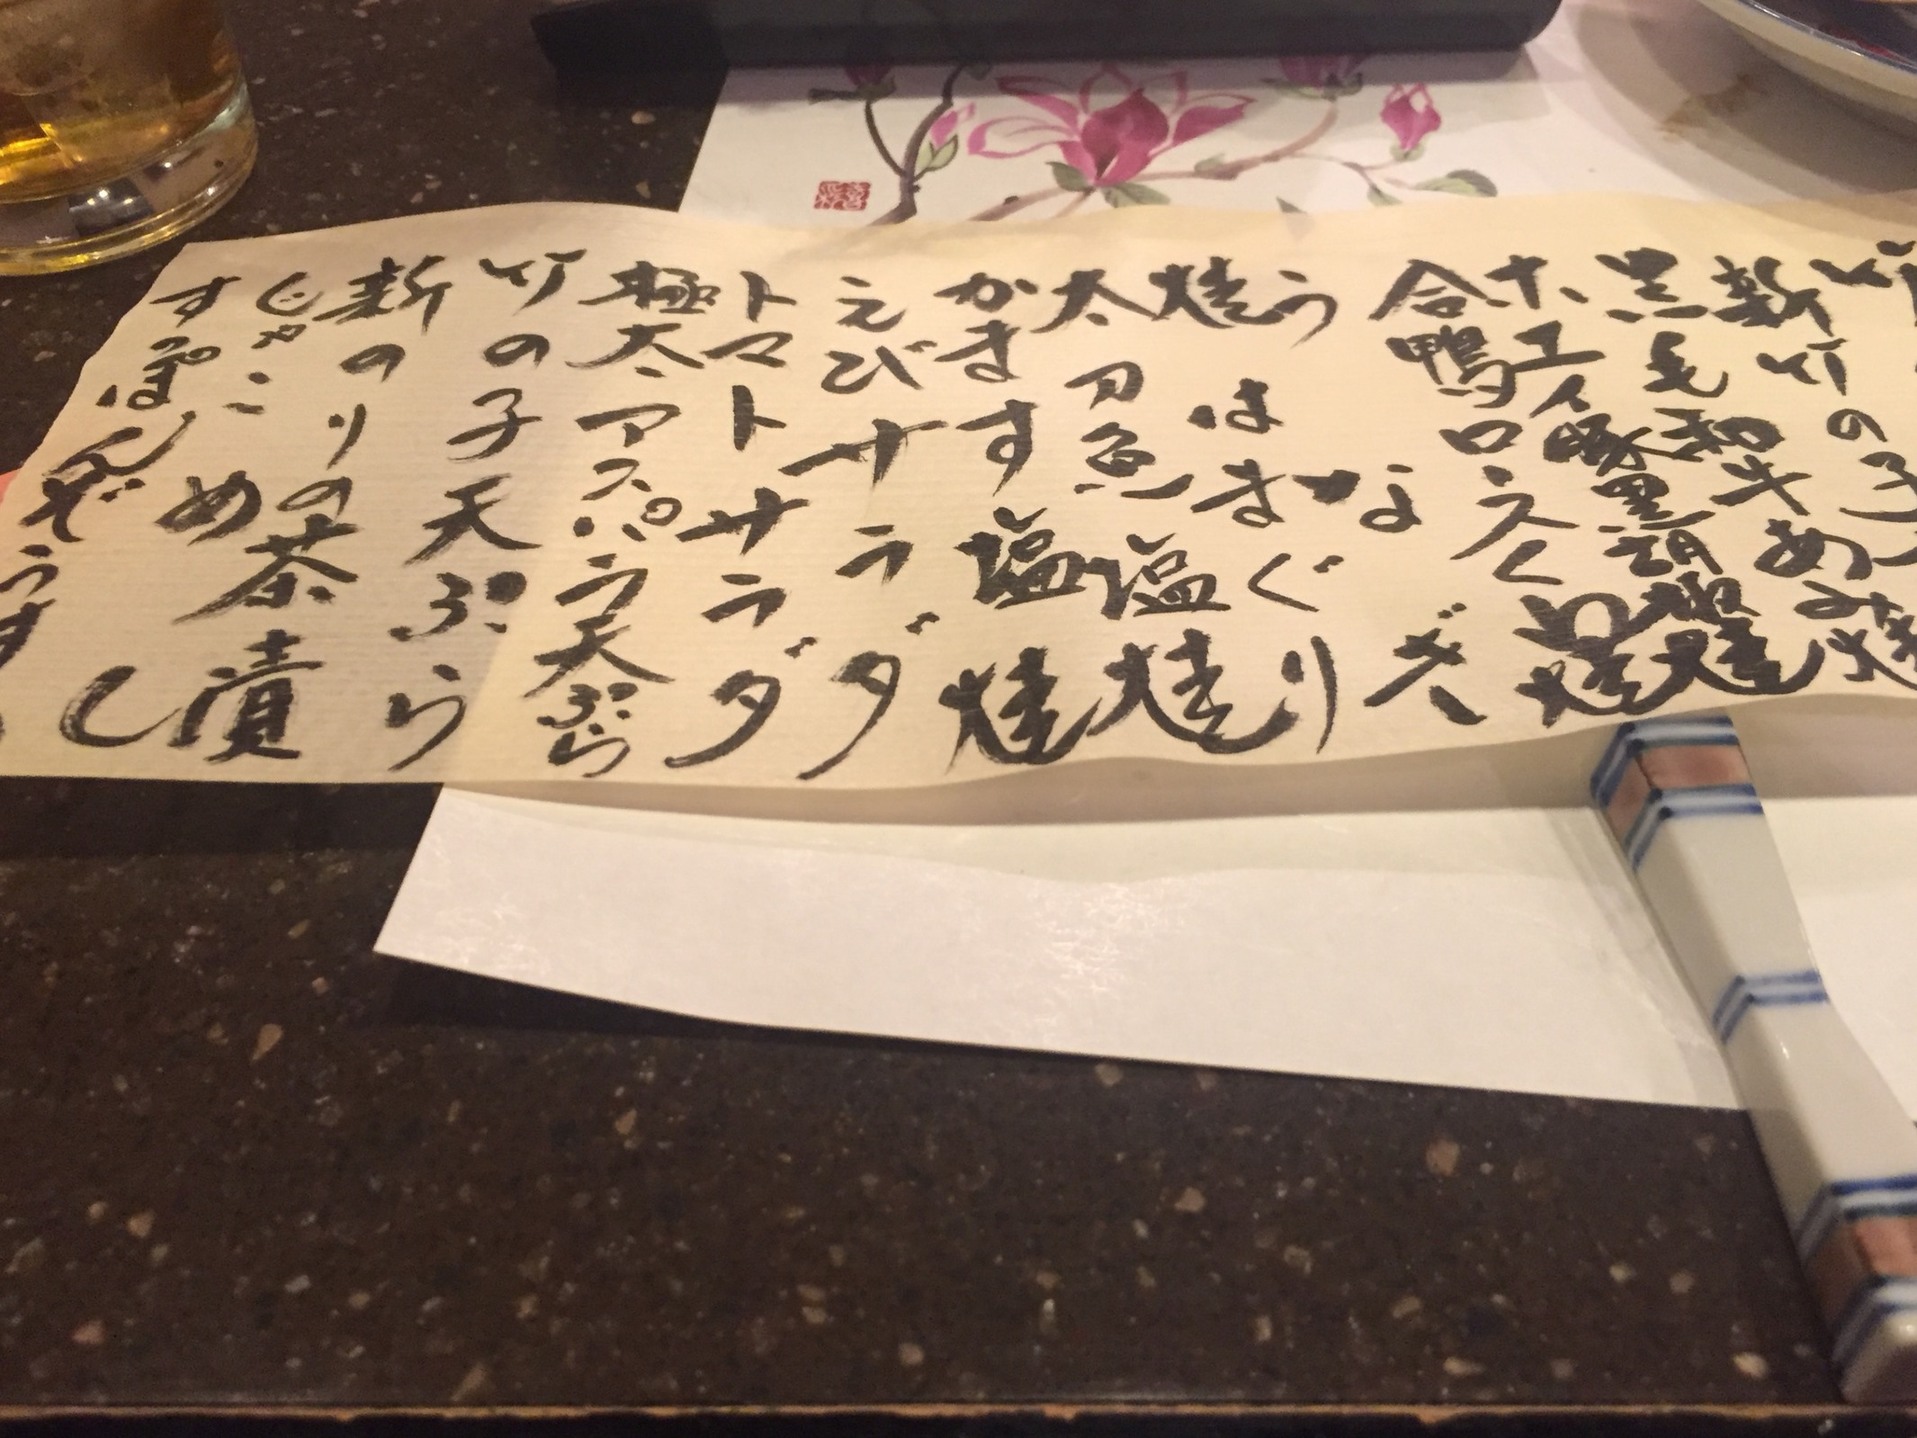 新竹の子
黒毛和牛あみ焼
ホエイ豚黒胡椒焼
合鴨ロースくわ焼
うなぎ
焼はまぐり
太刀魚塩焼
かます塩焼
えびサラダ
トマトサラダ
極太アスパラ天ぷら
竹の子天ぷら
新のりの茶漬
じゃこめし
すっぽんぞうす